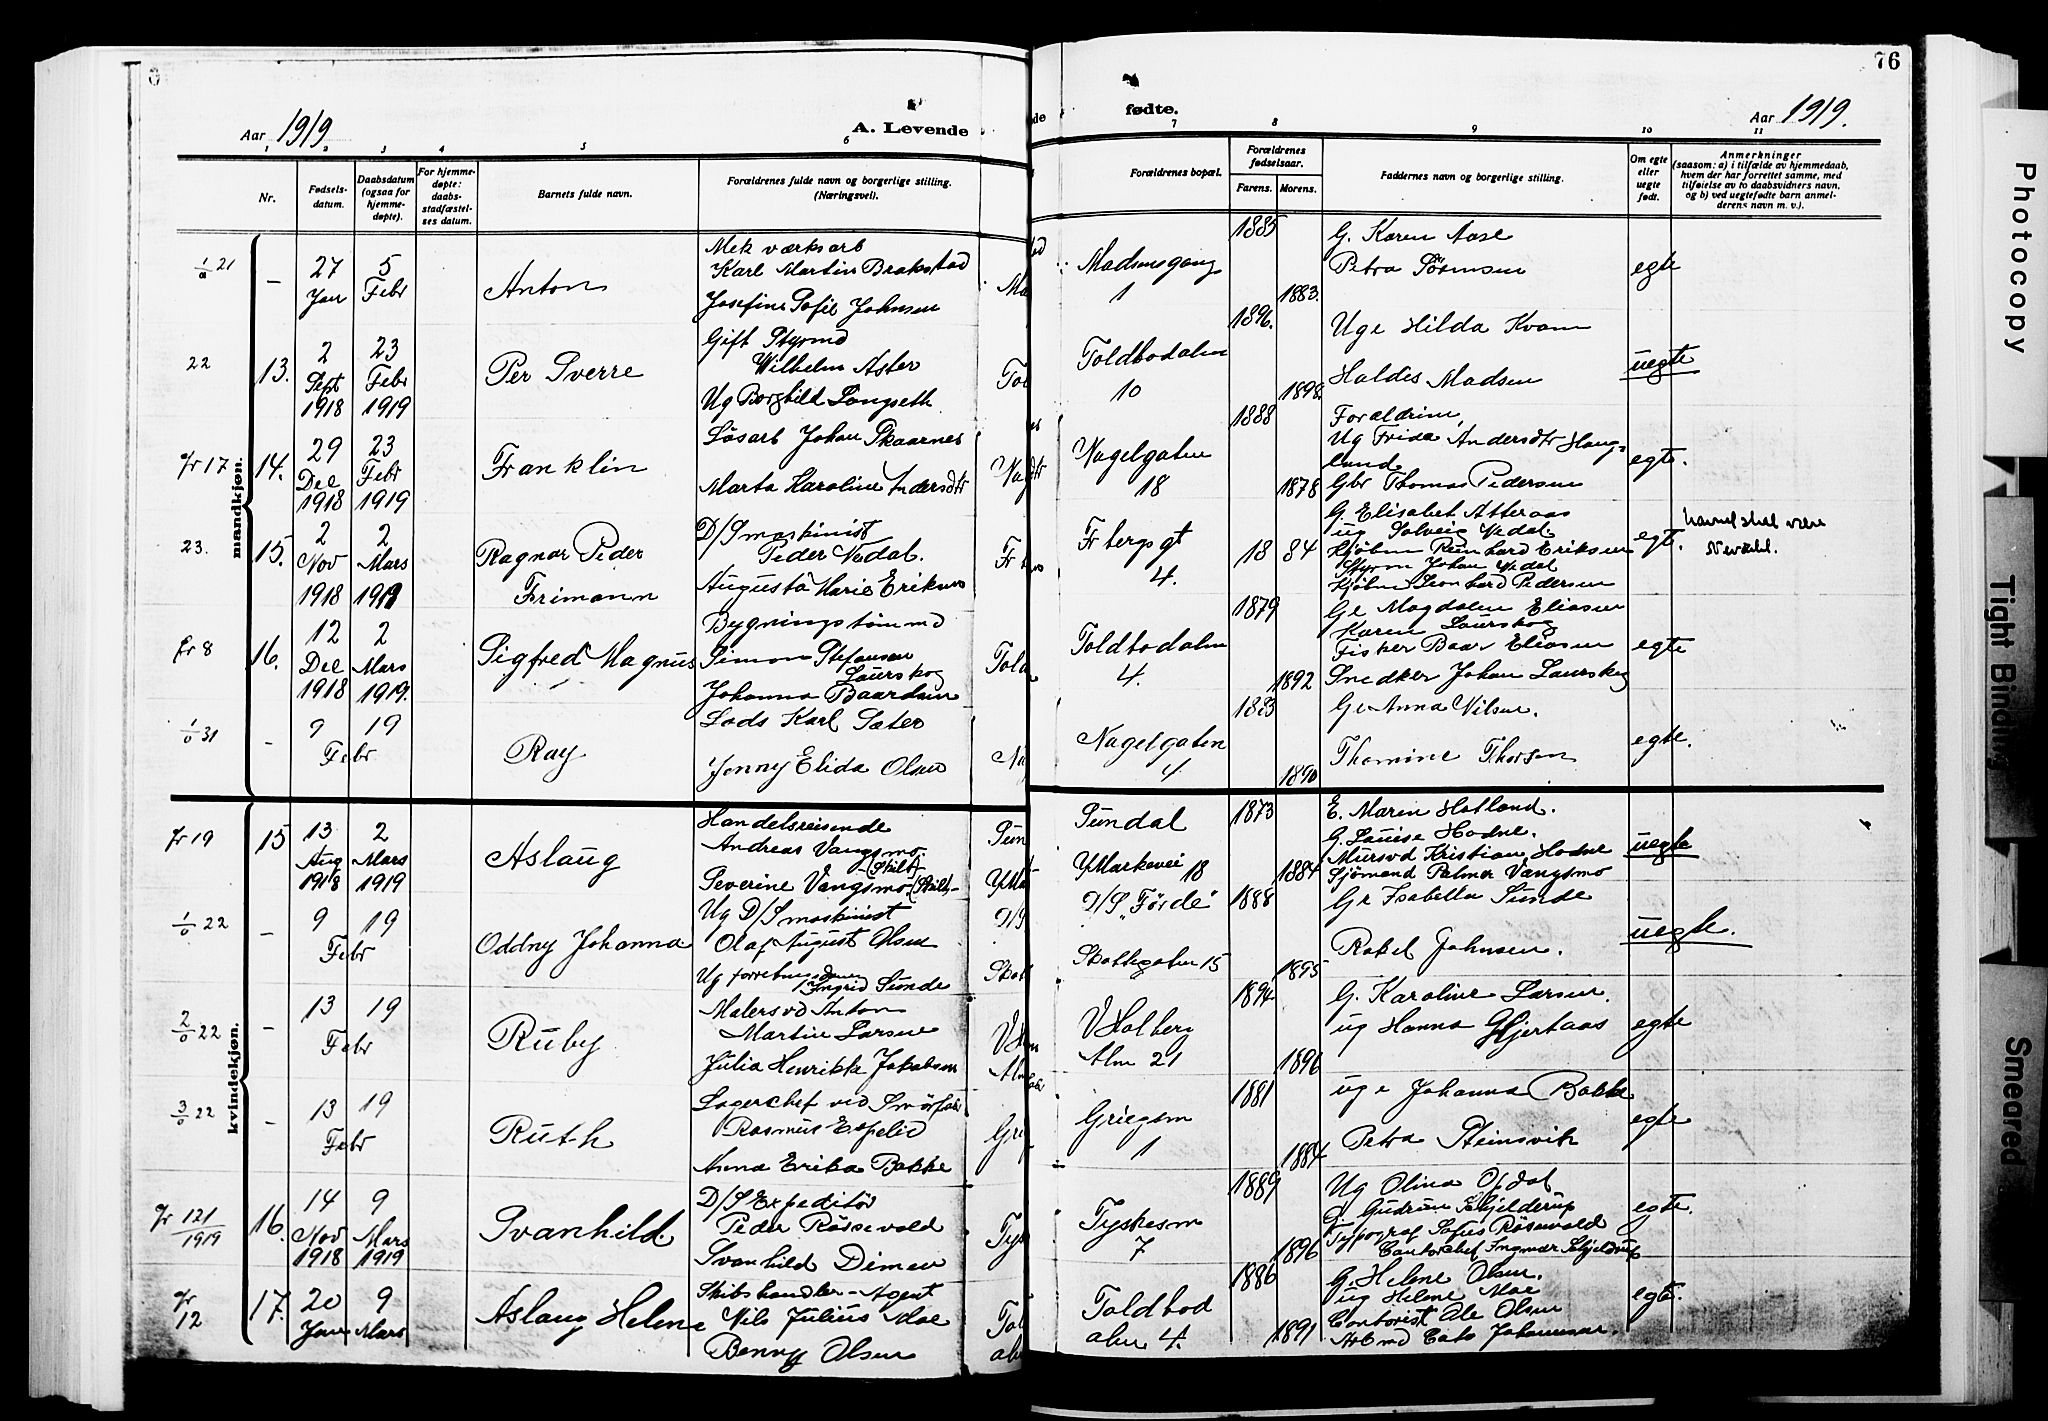 76
Aar 1919
A. Levende
fødte.
Aar 1919.
1 2 3 4 5 6 7 8 9 10 11
Nr.
Fødsels-
datum.
Daabsdatum
(ogsaa for
hjemme-
døpte).
For hjemme-
døpte:
daabs-
stadfæstel-
ses datum.
Barnets fulde navn.
Forældrenes fulde navn og borgerlige stilling.
(Næringsvei).
Forældrenes bopæl.
Forældrenes
fødselsaar.
Farens. Morens.
Faddernes navn og borgerlige stilling.
Om egte
eller
uegte
født.
Anmerkninger
(saasom: a) i tilfælde av hjemmedaab,
hvem der har forrettet samme, med
tilføielse av to daabsvidners navn,
og b) ved uegtefødte barn anmel-
derens navn m. v.).
mandkjøn.
21
27 Jan
5 Febr
Anton
Mek værksarb
Karl Martin Brakstad
Josefine Sofie Johnsen
Madsensgang
1
1885
1883.
G. Karen Aase
Petra Sörensen
egte
22
13.
2 Sept 1918
23 Febr 1919
Per Sverre
Gift Styrmd
Wilhelm Aster
Ug Borghild Langseth
Toldbodalm
10
1896.
1898.
Ug e Hilda Kvam
Haldis Madsen
uegte
Fr 17
14.
29 Dec 1918
23 Febr 1919
Franklin
Løsarb Johan Skaarnes
Marta Karoline Andersdtr
Nagelgaten
18
1888
1878
Forældrene,
Ug Frida Andersdtr Haug-
land
Gbr Thomas Pedersen
egte.
23.
15.
2 Nov 1918
2 Mars 1919
Ragnar Peder
Frimann
D/S maskinist
Peder Vedal.
Augusta Marie Eriksen
Fr bergsgt
4.
18 84
G. Elisabet Atteraas
ug Solveig Vedal
Kjøbm Reinhard Eriksen
Styrm Johan Vedal
Kjøbm Leonhard Pedersen
egt.
Navnet skal være
Fr 8
16.
12 Dec 1918
2 Mars 1919.
Sigfred Magnus
Bygningstømmd
Simon Stefansen
Laurskog
Johanna Baardsen
Toldbodalm
4.
1879
1892
Ge Magdalen Eliasen
Karen Laurskog
Fisker Baar Eliasen
Snedker Johan Laurskog
egte
31
9 19
Febr
Ray
Lods Karl Sæter
Jenny Elida Olsen
Nagelgaten
4
1883
1890
Ge Anna Nilsen.
Thomine Thorsen
egte.
kvindekjøn.
Fr 19
15
13 Aug 1918
2 Mars 1919
Aslaug
Handelsreisende
Andreas Vangsmo
(Skilt)
Severine Vangsmo (Skilt)
Sundal
YMarkevei 18
1873
1884
E. Maren Hatland.
G. Louise Hodne.
Mursvd Kristian Hodne
Sjömand Palmer Vangsmo
uegte
22
9 19
Febr
Oddny Johanna
Ug D/S maskinist
Olaf August Olsen
Ug forretningsdame
Ingrid Sunde
D/S "Förde"
Skottegaten 15
1888
1895
Ge Isabella Sunde
Rakel Johnsen.
uegte.
22
13 19
Febr
Ruby
Malersvd Anton
Martin Larsen
Julia Henrikke Jakobsen
V Holberg
Alm 21
1894
1896
G. Karoline Larsen.
ug Hanna Gjertaas
egte
22
13 19
Febr
Ruth
Lagerchef ved Smörfabr
Rasmus Espelid
Anna Erika Bakke
Griegsm
1
1881
1884
ug e Johanna Bakke
Petra Steinsvik
egte
Fr 121/1919
16.
14 Nov 1918
9 Mars 1919
Svanhild.
D/S Expeditör
Peder Rössevold
Svanhild Dimen
Tyskesm
7
1889
1896
Ug Olina Opdal
G. Gudrun Schjelderup
Typograf Sofus Rösevold
Contorchef Ingmar Schjelderup
egte.
Fr 12
17.
20 Jan
9 Mars
Aslaug Helene
Skibshandler-Agent
Nils Julius Moe
Benny Olsen
Toldbod
alm 4.
1886
1891
G. Helene Olsen.
ug Helene Moe
Contorist Ole Olsen
Arbmd Cato Johannesen.
egte.
Photocopy
Tight Binding
Smeared